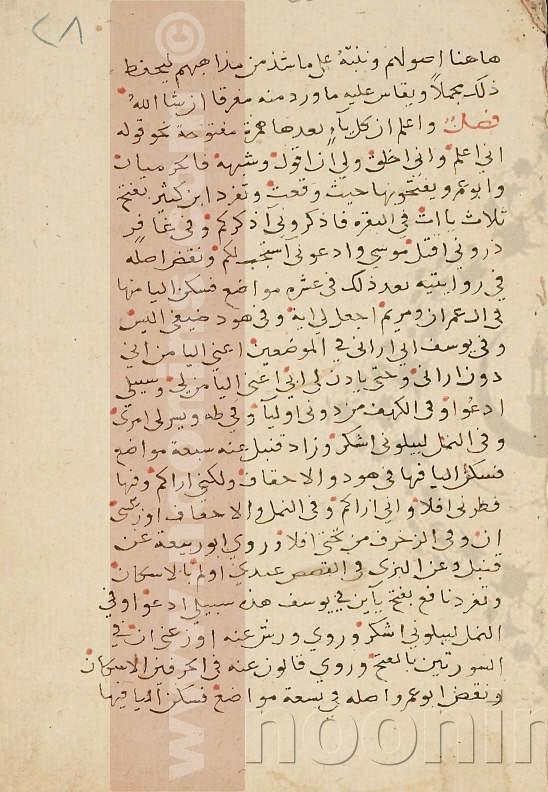 ٢٨
هاهنا اصولهم وننبّه على ما شذ من مذاهبهم ليحفظ
ذلك مجملاً ويقاس عليه ما ورد منه مفرقا ان شا الله
فصل واعلم ان كل يآء بعدها همزة مفتوحة نحو قوله
اني اعلم واني اخلق ولي ان اقول وشبهه فالحرميان
وابو عمرو يفتحونها حيث وقعت وتفرد ابن كثير بفتح
ثلاث ياات في البقره فاذكروني آذكركم وفي غافر
ذروني اقتل موسي وادعوني استجب لكم ونقض اصله
في روايتيه بعد ذلك في عشره مواضع فسكن اليا فيها
في ال عمران ومريم اجعل لي اية وفي هود ضيفي اليس
وفي يوسف اني اراني في الموضعين اعني اليا من اني
دون اراني وحتي ياذن لي ابي اعني اليا من لي وسبيلي
ادعوا وفي الكهف من دوني اوليآ وفي طه ويسر لي امري
وفي النمل ليبلوني اشكر وزاد قنبل عنه سبعة مواضع
فسكن اليا فيها في هود والاحقاف ولكني اراكم وفيها
فطرني افلا واني اراكم وفي النمل والاحقاف اوزعني
ان وفي الزخرف من تحتي افلا وروي ابو ربيعة عن
قنبل وعن البزي في القصص عندي اولم بالاسكان
وتفرد نافع بفتح ياين في يوسف هذه سبيلي ادعوا وفي
النمل ليبلوني اشكر وروي ورش عنه اوزعني ان في
السورتين بالفتح وروي قالون عنه في الحرفين الاسكان
ونقض ابو عمرو اصله في تسعة مواضع فسكن اليا فيها
www.
noonin